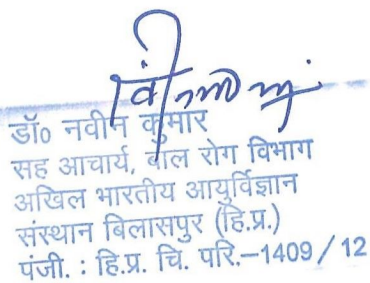 डॉ० नवीन कुमार
सह आचार्य, बाल रोग विभाग
अखिल भारतीय आयुर्विज्ञान
संस्थान बिलासपुर (हि.प्र.)
पंजी. : हि.प्र. चि. परि.–1409 / 12